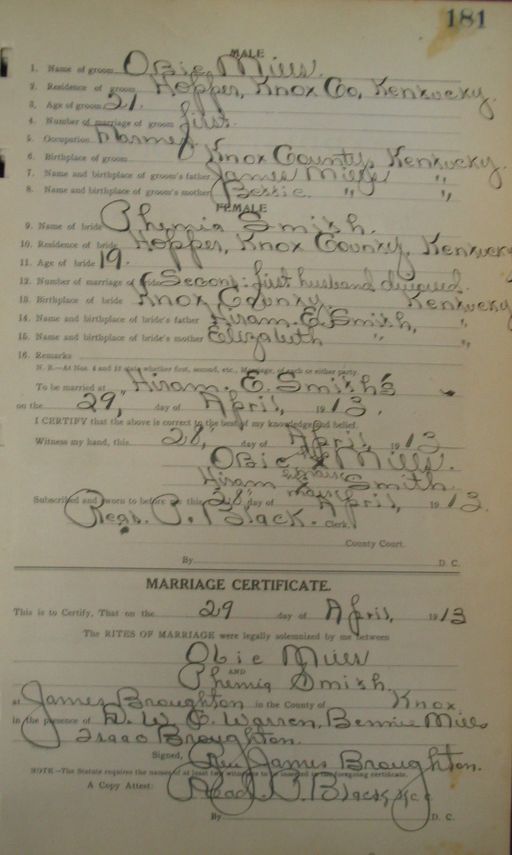 181
MALE
1. Name of groom Obie Mills.
2. Residence of groom Hopper, Knox Co, Kentucky.
3. Age of groom 21.
4. Number of marriage of groom first.
5. Occupation Farmer
6. Birthplace of groom Knox County, Kentucky.
7. Name and birthplace of groom's father James Mills "
8. Name and birthplace of groom's mother Bettie. " "
FEMALE
9. Name of bride Phemia Smith.
10. Residence of bride Hopper, Knox County, Kentucky
11. Age of bride 19.
12. Number of marriage of bride Second: first husband
13. Birthplace of bride Knox County. Kentucky
14. Name and birthplace of bride's father Hiram. E. Smith, "
15. Name and birthplace of bride's mother Elizabeth " "
16. Remarks
N. B.—At Nos. 4 and 12 state whether first, second, etc., Marriage, of each or either party.
To be married at Hiram. E. Smith's
on the 29, day of April, 1913.
I CERTIFY that the above is correct to the best of my knowledge and belief.
Witness my hand, this 28, day of April, 1913
Obie x Mills.
Hiram x Smith.
Subscribed and sworn to before me this 28, day of April, 1913.
Read. P. Black. Clerk
County Court.
By D. C.
MARRIAGE CERTIFICATE.
This is to Certify, That on the 29 day of April, 1913
The RITES OF MARRIAGE were legally solemnized by me between
Obie Mills
AND
Phemia Smith.
at James Broughton in the County of Knox,
in the presence of D. W. E. Warren, Bennie Mills
Isaac Broughton.
Signed, Rev. James Broughton.
NOTE—The Statute requires the names of at least two witnesses to be inserted in the foregoing certificate.
A Copy Attest: Read. P. Black,
By D. C.